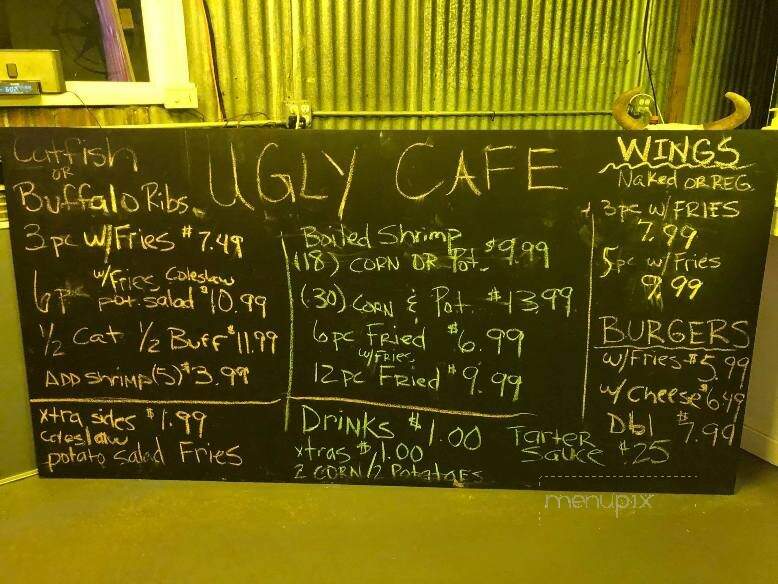 UGLY CAFE
Catfish
OR
Buffalo Ribs
3 pc w/Fries $7.49
w/fries, Coleslaw
6 p pot. salad $10.99
1/2 Cat 1/2 Buff $11.99
ADD shrimp (5) $3.99
xtra sides $1.99
coleslaw
potato salad Fries
Boiled Shrimp
(18) CORN OR Pot. $9.99
(30) CORN & Pot. $13.99
6 pc Fried $6.99
w/Fries
12 pc Fried $9.99
Drinks $1.00
xtras $1.00
2 CORN/2 Potatoes
Tarter
Sauce $.25
WINGS
Naked OR REG.
3 pc w/FRIES
7.99
5 pc w/Fries
9.99
BURGERS
w/Fries $5.99
w/ cheese $6.49
Dbl $7.99
menupix